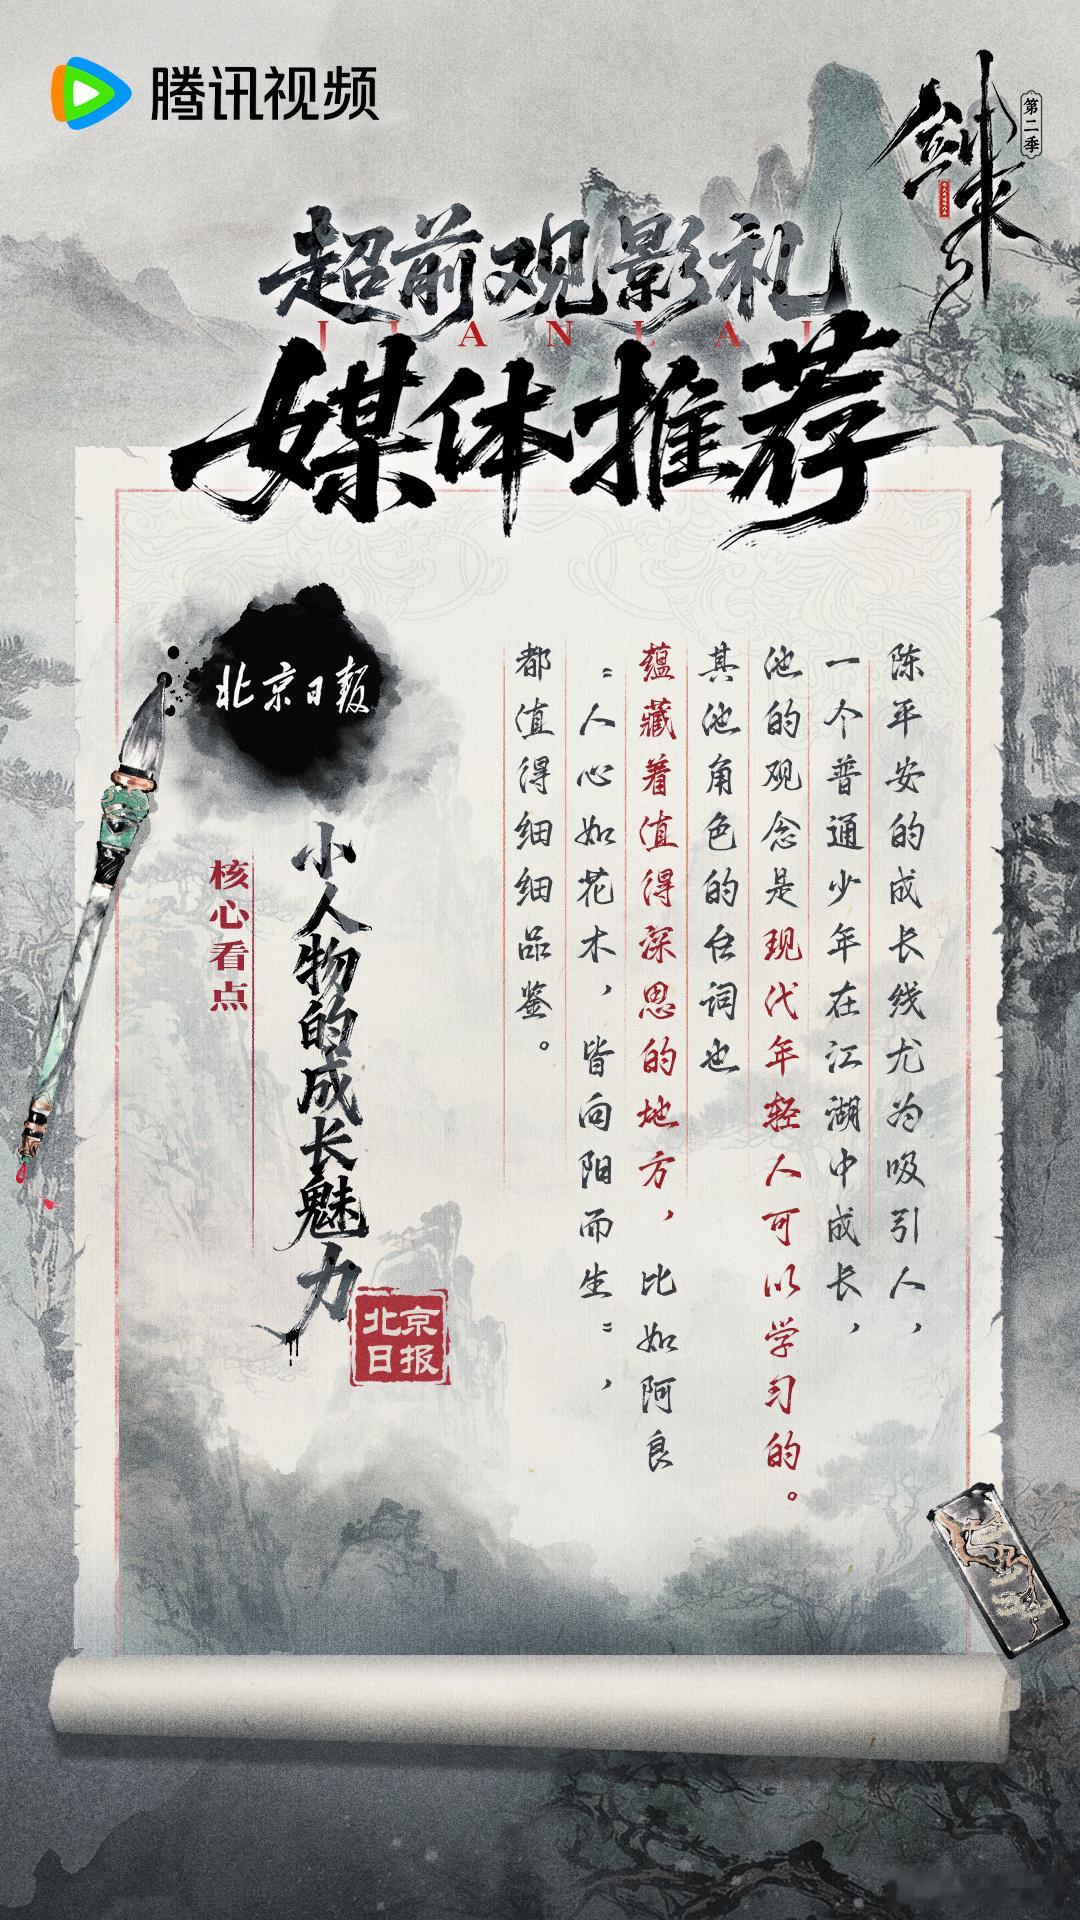 腾讯视频
剑来
第二季
超前观影礼
JIANLAI
媒体推荐
北京日报
陈平安的成长线尤为吸引人，
一个普通少年在江湖中成长，
他的观念是现代年轻人可以学习的。
其他角色的台词也
蕴藏着值得深思的地方，比如阿良
“人心如花木，皆向阳而生”，
都值得细细品鉴。
小人物的成长魅力
核心看点
北京
日报